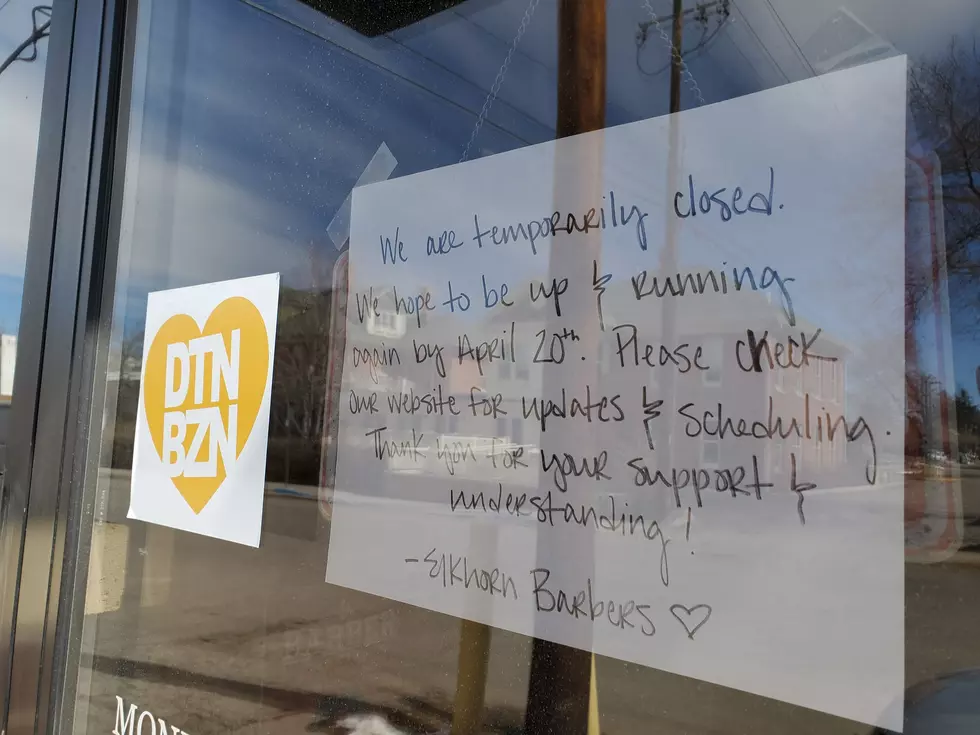 We are temporarily closed.
We hope to be up & running
again by April 20th. Please check
our website for updates & scheduling.
Thank you for your support &
understanding!
-Elkhorn Barbers ♡
DTN
BZN
MON